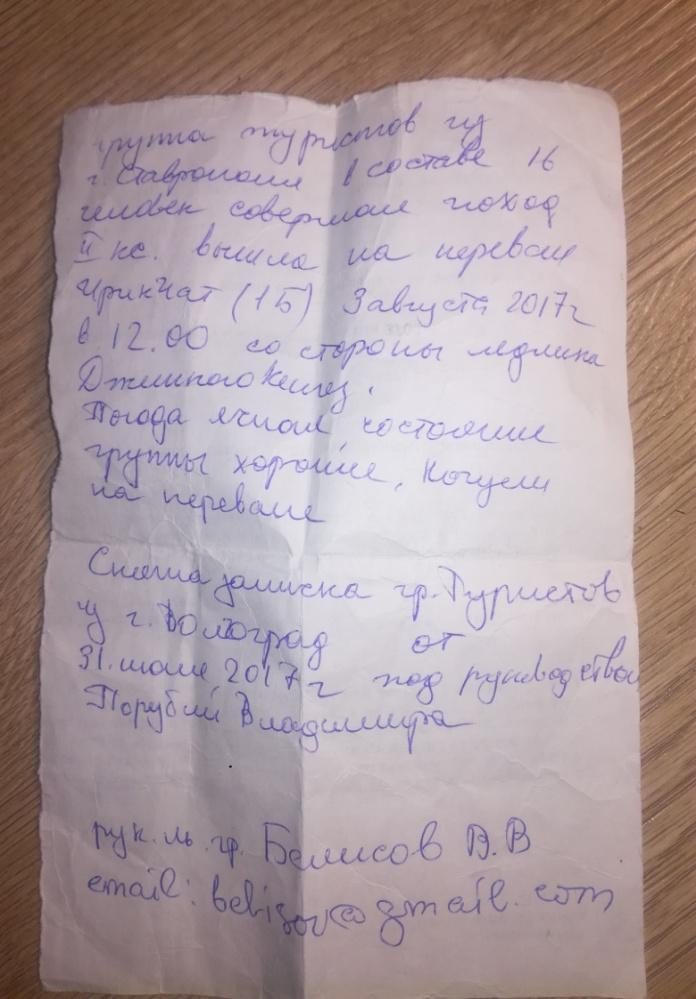 группа туристов из
г. Ставрополя в составе 16
человек совершая поход
II кс. вышла на перевал
Ирикчат (1Б) 3 августа 2017 г
в 12.00 со стороны ледника
Джикаугенкез.
Погода ясная, состояние
группы хорошее, Ночуем
на перевале
Снята записка гр. Туристов
из г. Волгоград от
31. июля 2017 г под руководством
Порубай Владимира
рук. ль. гр. Белисов В.В
email: @gmail.com